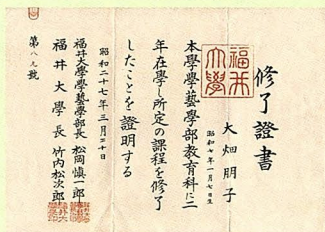 修了證書
福井大學
大畑朋子
昭和七年一月七日生
本學學藝學部教育科に二
年在學し所定の課程を修了
したことを證明する
昭和二十七年三月二十日
福井大學學藝學部長 松岡愼一郎
福井大學長 竹内松次郎
第八九號